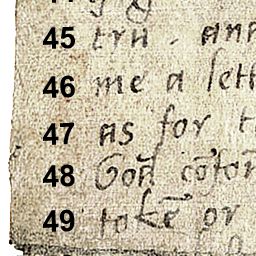 45 tru . ana
46 me a lett
47 as for t
48 God cōfor
49 tokē or